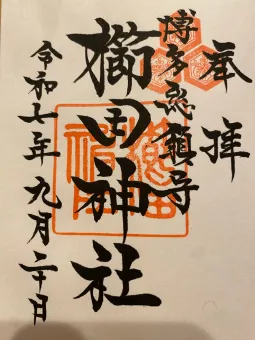 奉拝
博多総鎮守
櫛田神社
令和七年九月二十日